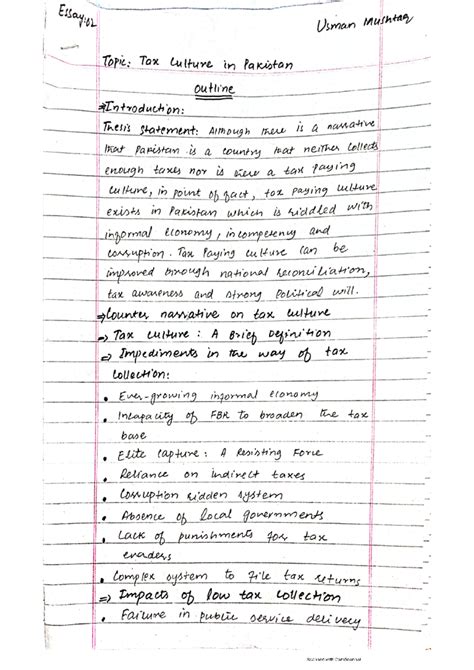 Essay:02
Usman Mushtaq
Topic: Tax Culture in Pakistan
Outline
⇒Introduction:
Thesis Statement: Although there is a narrative
that Pakistan is a country that neither collects
enough taxes nor is there a tax paying
culture, in point of fact, tax paying culture
exists in Pakistan which is riddled with
informal economy, incompetency and
corruption. Tax paying culture can be
improved through national reconciliation,
tax awareness and strong political will.
⇒Counter narrative on tax culture
⇒ Tax culture: A Brief Definition
⇒ Impediments in the way of tax
collection:
• Ever-growing informal economy
• Incapacity of FBR to broaden the tax
base
• Elite Capture: A Resisting Force
• Reliance on indirect taxes
• Corruption ridden system
• Absence of local governments
• Lack of punishments for tax
evaders
• Complex system to file tax returns
⇒ Impacts of low tax collection
• Failure in public service delivery
Scanned with CamScanner